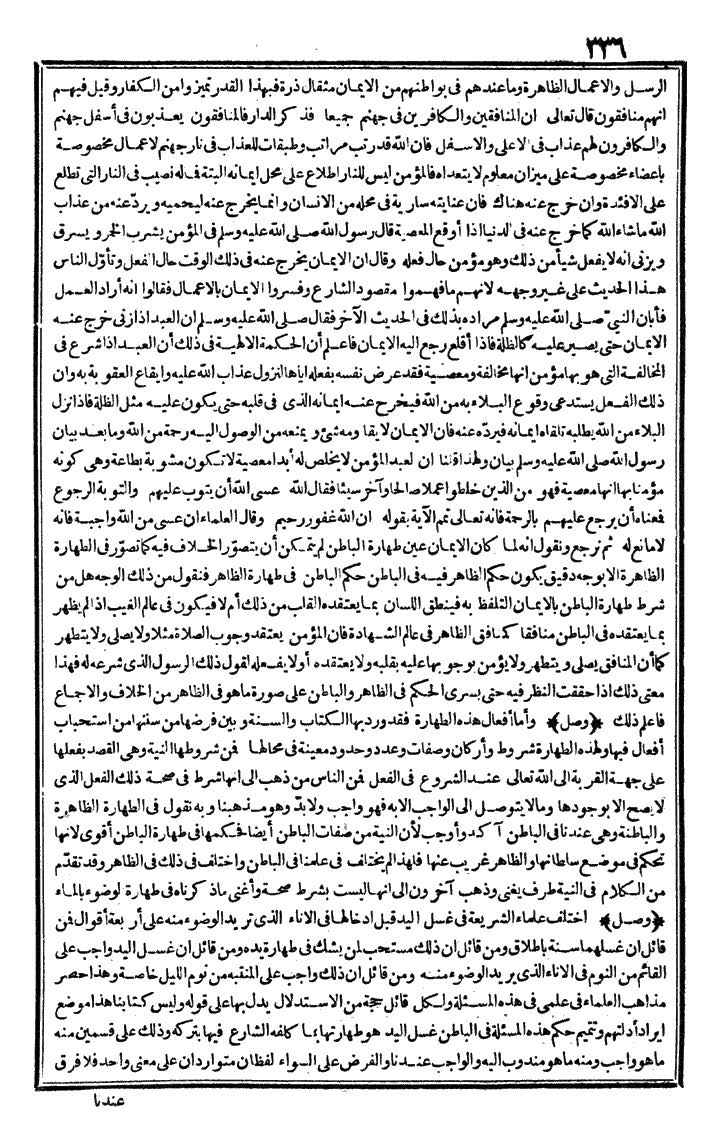 ٣٣٦
الرسل والاعمال الظاهرة وما عندهم فى بواطنهم من الايمان مثقال ذرة فبهذا القدر تميزوا من الكفار وقيل فيهم
انهم منافقون قال تعالى ان المنافقين والكافرين فى جهنم جميعا فذكر الدار فالمنافقون يعذبون فى أسفل جهنم
والكافرون لهم عذاب فى الاعلى والاسفل فان الله قدرتب مراتب وطبقات للعذاب فى نار جهنم لاعمال مخصوصة
باعضاء مخصوصة على ميزان معلوم لا يتعداه فالمؤمن ليس للنار اطلاع على محل ايمانه البتة فاله نصيب فى النار التى تطلع
على الافئدة وان خرج عنه هناك فان عنايته سارية فى محله من الانسان وانما يخرج عنه ليحميه ويردّ عنه من عذاب
الله ماشاء الله كما خرج عنه فى الدنيا اذا أوقع المعصية قال رسول الله صلى الله عليه وسلم فى المؤمن يشرب الخمر ويسرق
ويزنى انه لا يفعل شيأ من ذلك وهو مؤمن حال فعله وقال ان الايمان يخرج عنه فى ذلك الوقت حال الفعل وتأوّل الناس
هذا الحديث على غير وجهه لانهم ما فهموا مقصود الشارع وفسروا الايمان بالاعمال فقالوا انه أراد العمل
فأبان النبىّ صلى الله عليه وسلم مراده بذلك فى الحديث الآخر فقال صلى الله عليه وسلم ان العبد اذا زنى خرج عنه
الايمان حتى يصير عليه كالظلة فاذا أقلع رجع اليه الايمان فاعلم أن الحكمة الالهية فى ذلك أن العبد اذا شرع فى
المخالفة التى هو بها مؤمن انها مخالفة ومعصية فقد عرض نفسه بفعله اياها لنزول عذاب الله عليه وايقاع العقوبة به وان
ذلك الفعل يستدعى وقوع البلاء به من الله فيخرج عنه ايمانه الذى فى قلبه حتى يكون عليه مثل الظلة فاذا نزل
البلاء من الله يطلبه تلقاه ايمانه فيردّه عنه فان الايمان لا يقاومه شئ ويمنعه من الوصول اليه رحمة من الله وما بعد بيان
رسول الله صلى الله عليه وسلم بيان ولهذا قلنا ان العبد المؤمن لا يخلص له أبدا معصية لا تكون مشوبة بطاعة وهى كونه
مؤمنا بها انها معصية فهو من الذين خلطوا عملا صالحا وآخر سيئا فقال الله عسى الله أن يتوب عليهم والتوبة الرجوع
فمعناه أن يرجع عليهم بالرحمة فانه تعالى تمم الآية بقوله ان الله غفور رحيم وقال العلماء ان عسى من الله واجبة فانه
لا مانع له ثم نرجع ونقول انه لما كان الايمان عين طهارة الباطن لم يتمكن أن يتصوّر الخلاف فيه كما تصوّر فى الطهارة
الظاهرة الا بوجه دقيق يكون حكم الظاهر فيه فى الباطن حكم الباطن فى طهارة الظاهر فنقول من ذلك الوجه هل من
شرط طهارة الباطن بالايمان التلفظ به فينطق اللسان بما يعتقده القلب من ذلك أم لا فيكون فى عالم الغيب اذا لم يظهر
بما يعتقده فى الباطن منافقا كمنافق الظاهر فى عالم الشهادة فان المؤمن يعتقد وجوب الصلاة مثلا ولا يصلى ولا يتطهر
كما أن المنافق يصلى ويتطهر ولا يؤمن بوجوبها عليه بقلبه ولا يعتقده أو لا يفعله لقول ذلك الرسول الذى شرعه له فهذا
معنى ذلك اذا حققت النظر فيه حتى يسرى الحكم فى الظاهر والباطن على صورة ما هو فى الظاهر من الخلاف والاجماع
فاعلم ذلك ﴿وصل﴾ وأما أفعال هذه الطهارة فقد ورد بها الكتاب والسنة وبين فرضها من سنتها من استحباب
أفعال فيها ولهذه الطهارة شروط وأركان وصفات وعدد وحدود معينة فى محالها فمن شروطها النية وهى القصد بفعلها
على جهة القربة الى الله تعالى عند الشروع فى الفعل فمن الناس من ذهب الى انها شرط فى صحة ذلك الفعل الذى
لا يصح الا بوجودها وما لا يتوصل الى الواجب الا به فهو واجب ولا بدّ وهو مذهبنا وبه نقول فى الطهارة الظاهرة
والباطنة وهى عندنا فى الباطن آكد وأوجب لأن النية من صفات الباطن أيضا فحكمها فى طهارة الباطن أقوى لانها
تحكم فى موضع سلطانها والظاهر غريب عنها فلهذا لم يختلف فى علمنا فى الباطن واختلف فى ذلك فى الظاهر وقد تقدّم
من الكلام فى النية طرف يغنى وذهب آخرون الى انها ليست بشرط صحة وأغنى ما ذكرناه فى طهارة لوضوء بالماء
﴿وصل﴾ اختلف علماء الشريعة فى غسل اليد قبل ادخالها فى الاناء الذى تريد الوضوء منه على أربعة أقوال فمن
قائل ان غسلهما سنة باطلاق ومن قائل ان ذلك مستحب لمن يشك فى طهارة يده ومن قائل ان غسل اليد واجب على
القائم من النوم فى الاناء الذى يريد الوضوء منه ومن قائل ان ذلك واجب على المنتبه من نوم الليل خاصة وهذا حصر
مذاهب العلماء فى علمى فى هذه المسئلة ولكل قائل حجة من الاستدلال يدل بها على قوله وليس كتابنا هذا موضع
ايراد أدلتهم وتتميم حكم هذه المسئلة فى الباطن غسل اليد هو طهارتها بما كلفه الشارع فيها بتركه وذلك على قسمين منه
ما هو واجب ومنه ما هو مندوب اليه والواجب عندنا والفرض على السواء لفظان متواردان على معنى واحد فلا فرق
عندنا